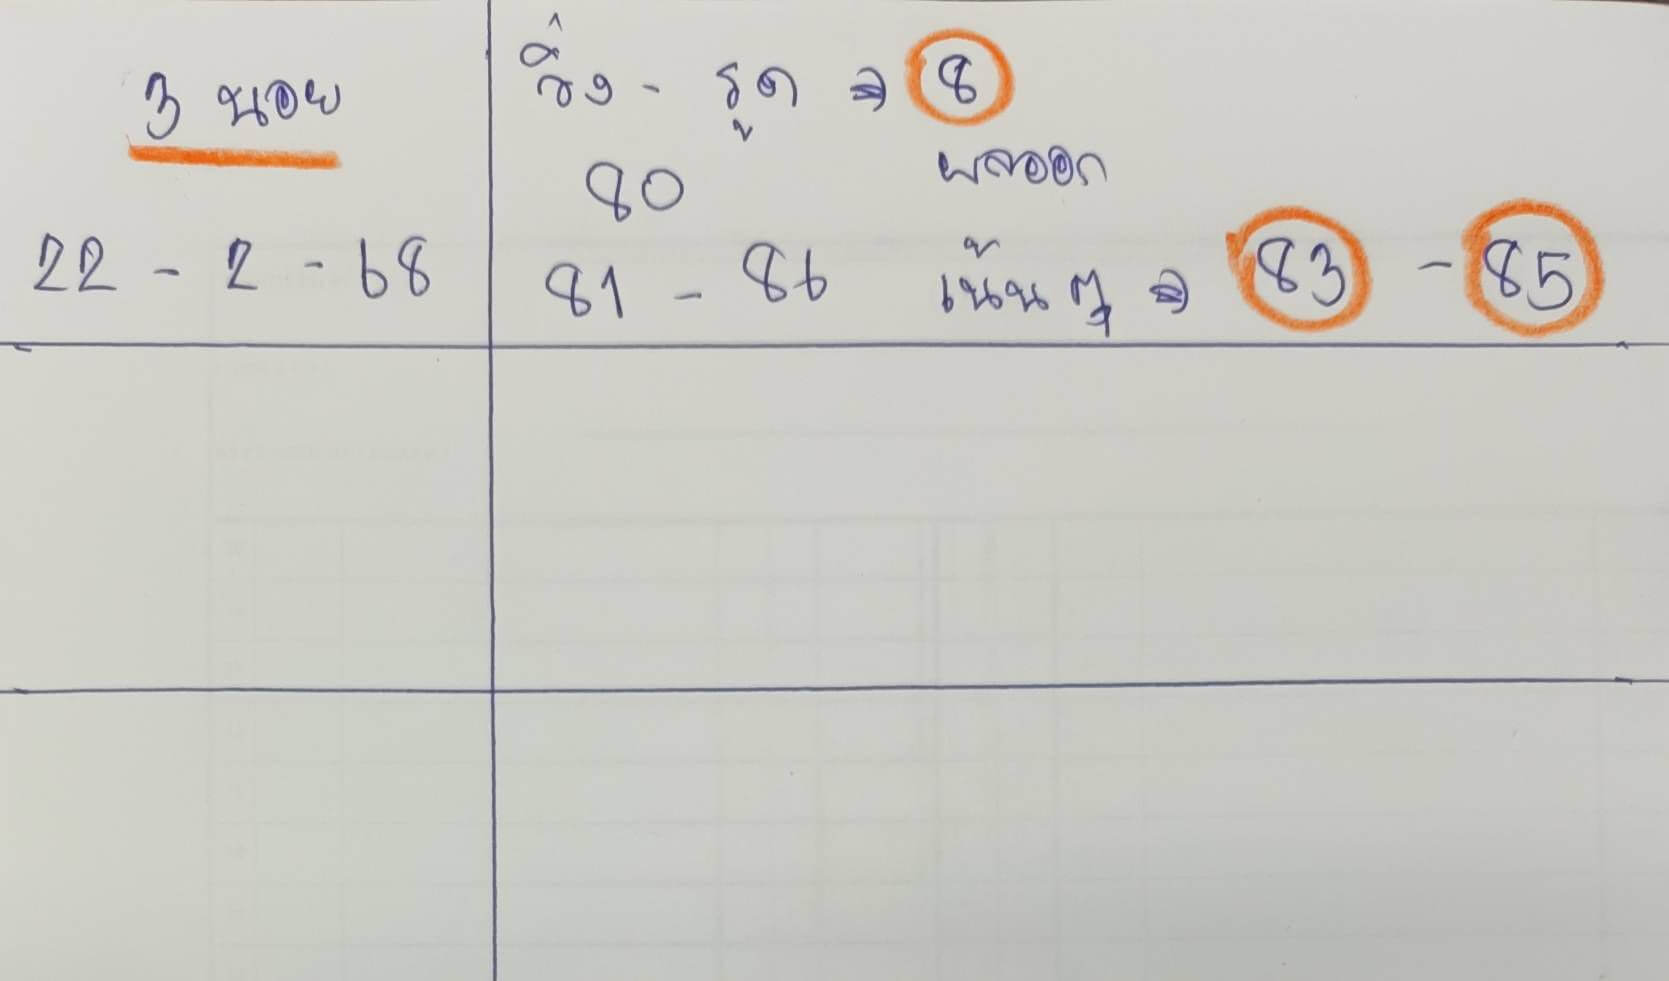 3 นอย
22 - 2 - 68
วิ่ง - รูด → 8
80
ผลออก
81 - 86
เน้นๆ → 83 - 85